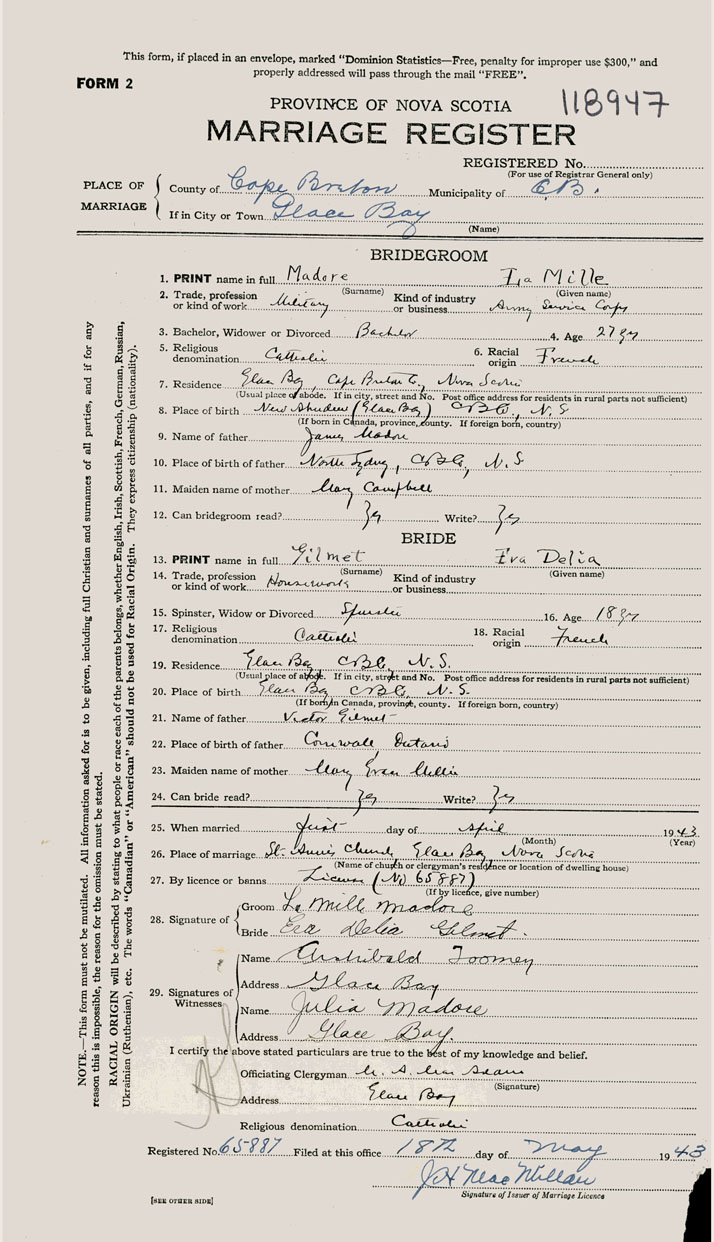 This form, if placed in an envelope, marked "Dominion Statistics—Free, penalty for improper use $300," and
properly addressed will pass through the mail "FREE".
FORM 2
PROVINCE OF NOVA SCOTIA 118947
MARRIAGE REGISTER
REGISTERED No.
(For use of Registrar General only)
PLACE OF MARRIAGE
County of Cape Breton Municipality of C.B.
If in City or Town Glace Bay
(Name)
BRIDEGROOM
1. PRINT name in full Madore La Mille
(Surname) (Given name)
2. Trade, profession or kind of work Military Kind of industry or business Army Service Corps
3. Bachelor, Widower or Divorced Bachelor 4. Age 27 yr
5. Religious denomination Catholic 6. Racial origin French
7. Residence Glace Bay, Cape Breton Co, Nova Scotia
(Usual place of abode. If in city, street and No. Post office address for residents in rural parts not sufficient)
8. Place of birth New Aberdeen (Glace Bay) C B Co, N. S
(If born in Canada, province, county. If foreign born, country)
9. Name of father James Madore
10. Place of birth of father North Sydney, C B Co, N. S
11. Maiden name of mother Mary Campbell
12. Can bridegroom read? Yes Write? Yes
BRIDE
13. PRINT name in full Gilmet Eva Delia
(Surname) (Given name)
14. Trade, profession or kind of work Housework Kind of industry or business
15. Spinster, Widow or Divorced Spinster 16. Age 18 yr
17. Religious denomination Catholic 18. Racial origin French
19. Residence Glace Bay C B Co, N. S.
(Usual place of abode. If in city, street and No. Post office address for residents in rural parts not sufficient)
20. Place of birth Glace Bay C B Co, N. S.
(If born in Canada, province, county. If foreign born, country)
21. Name of father Victor Gilmet
22. Place of birth of father Cornwall Ontario
23. Maiden name of mother Mary
24. Can bride read? Yes Write? Yes
25. When married first day of April 1943
(Month) (Year)
26. Place of marriage St. Anne's Church, Glace Bay, Nova Scotia
(Name of church or clergyman's residence or location of dwelling house)
27. By licence or banns License (No 65887)
(If by licence, give number)
28. Signature of
Groom La Mill Madore
Bride Eva Delia Gilmet.
29. Signatures of Witnesses
Name Archibald Toomey
Address Glace Bay
Name Julia Madore
Address Glace Bay.
I certify the above stated particulars are true to the best of my knowledge and belief.
Officiating Clergyman
(Signature)
Address Glace Bay
Religious denomination Catholic
Registered No. 65887 Filed at this office 18th day of May 1943
J H MacMillan
Signature of Issuer of Marriage Licence
[SEE OTHER SIDE]
NOTE.—This form must not be mutilated. All information asked for is to be given, including full Christian and surnames of all parties, and if for any
reason this is impossible, the reason for the omission must be stated.
RACIAL ORIGIN will be described by stating to what people or race each of the parents belongs, whether English, Irish, Scottish, French, German, Russian,
Ukrainian (Ruthenian), etc. The words "Canadian" or "American" should not be used for Racial Origin. They express citizenship (nationality).